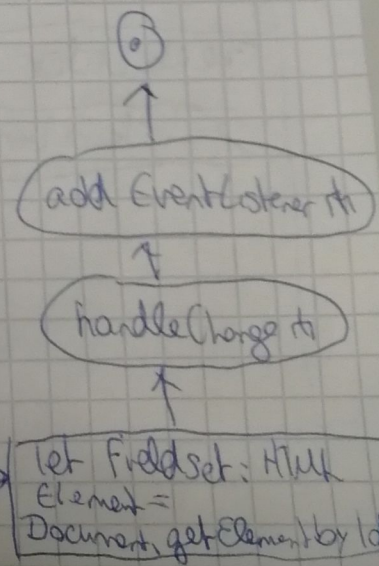 add EventListener
handleChange
let Fieldset: HTML
Element =
Document.getElementbyId